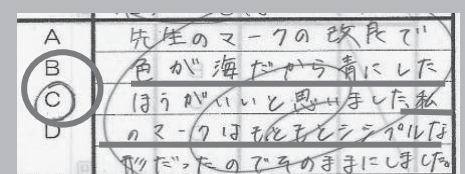 A
B
C
D
先生のマークの改良で
色が海だから青にした
ほうがいいと思いました私
のマークはもともとシンプルな
形だったのでそのままにしました。